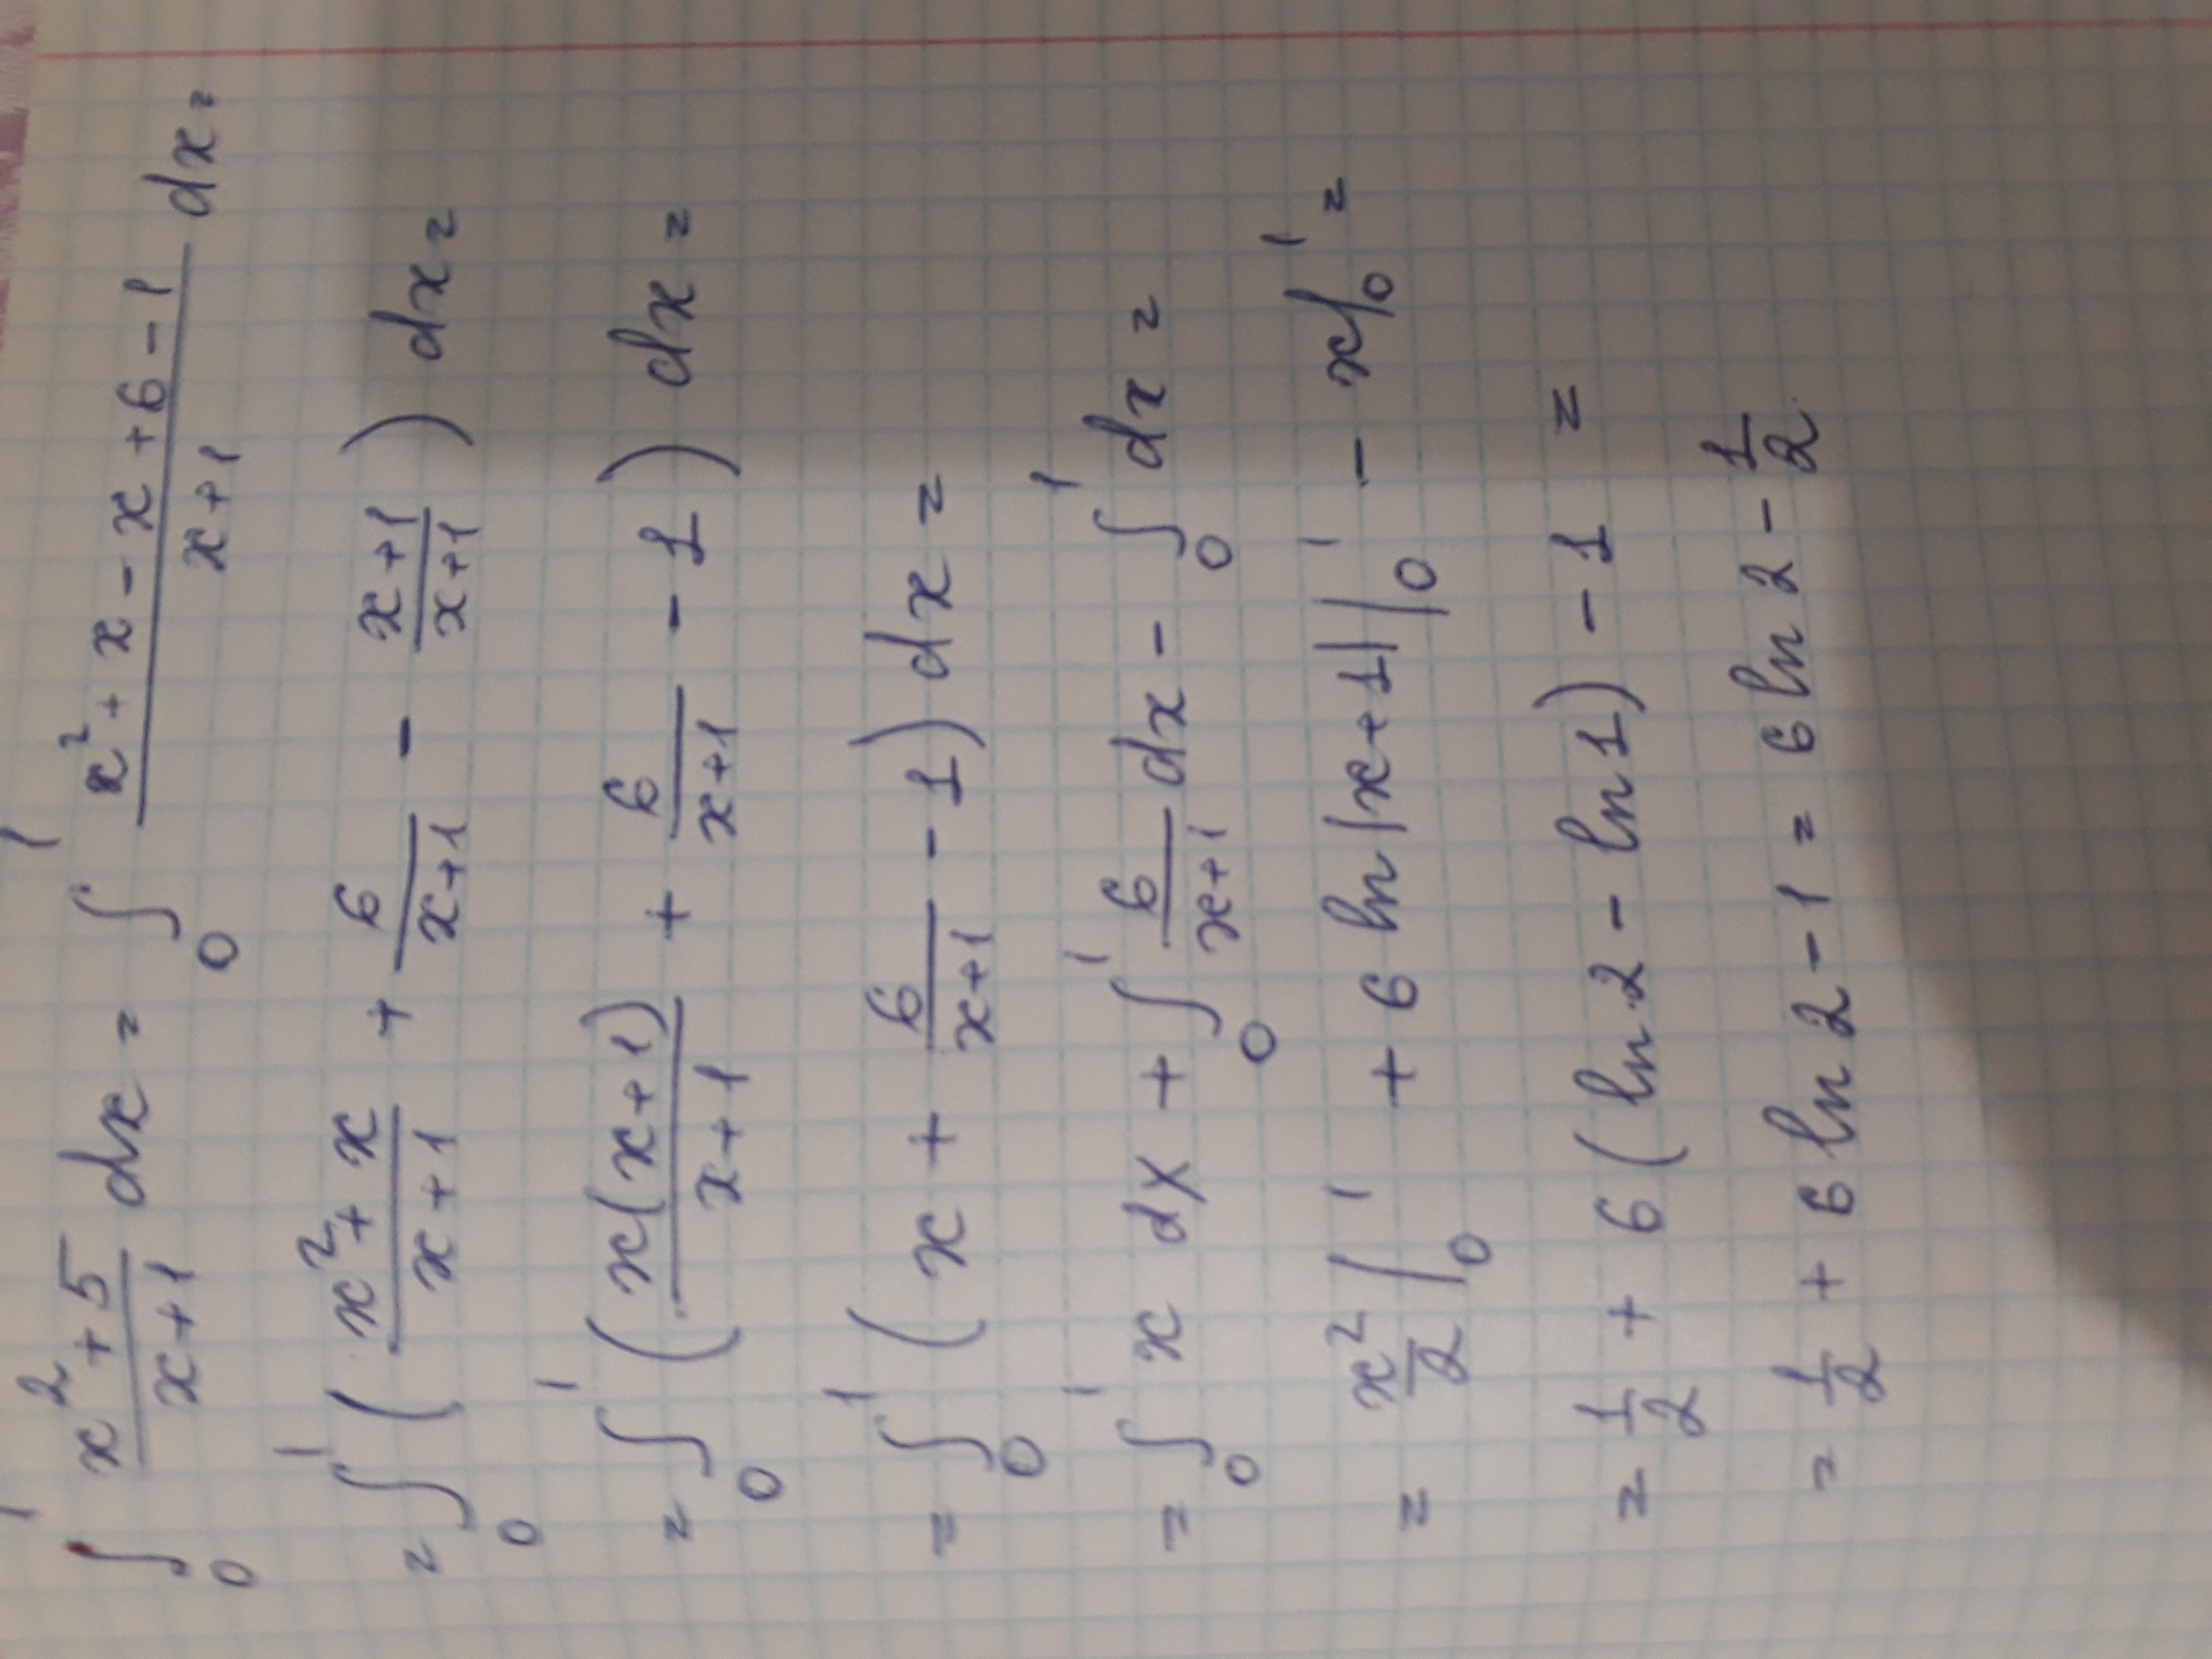 ∫₀¹ (x²+5)/(x+1) dx = ∫₀¹ (x²+x-x+6-1)/(x+1) dx =
= ∫₀¹ ((x²+x)/(x+1) + 6/(x+1) - (x+1)/(x+1)) dx =
= ∫₀¹ (x(x+1)/(x+1) + 6/(x+1) - 1) dx =
= ∫₀¹ (x + 6/(x+1) - 1) dx =
= ∫₀¹ x dx + ∫₀¹ 6/(x+1) dx - ∫₀¹ dx =
= x²/2 |₀¹ + 6 ln|x+1| |₀¹ - x|₀¹ =
= 1/2 + 6(ln 2 - ln 1) - 1 =
= 1/2 + 6 ln 2 - 1 = 6 ln 2 - 1/2